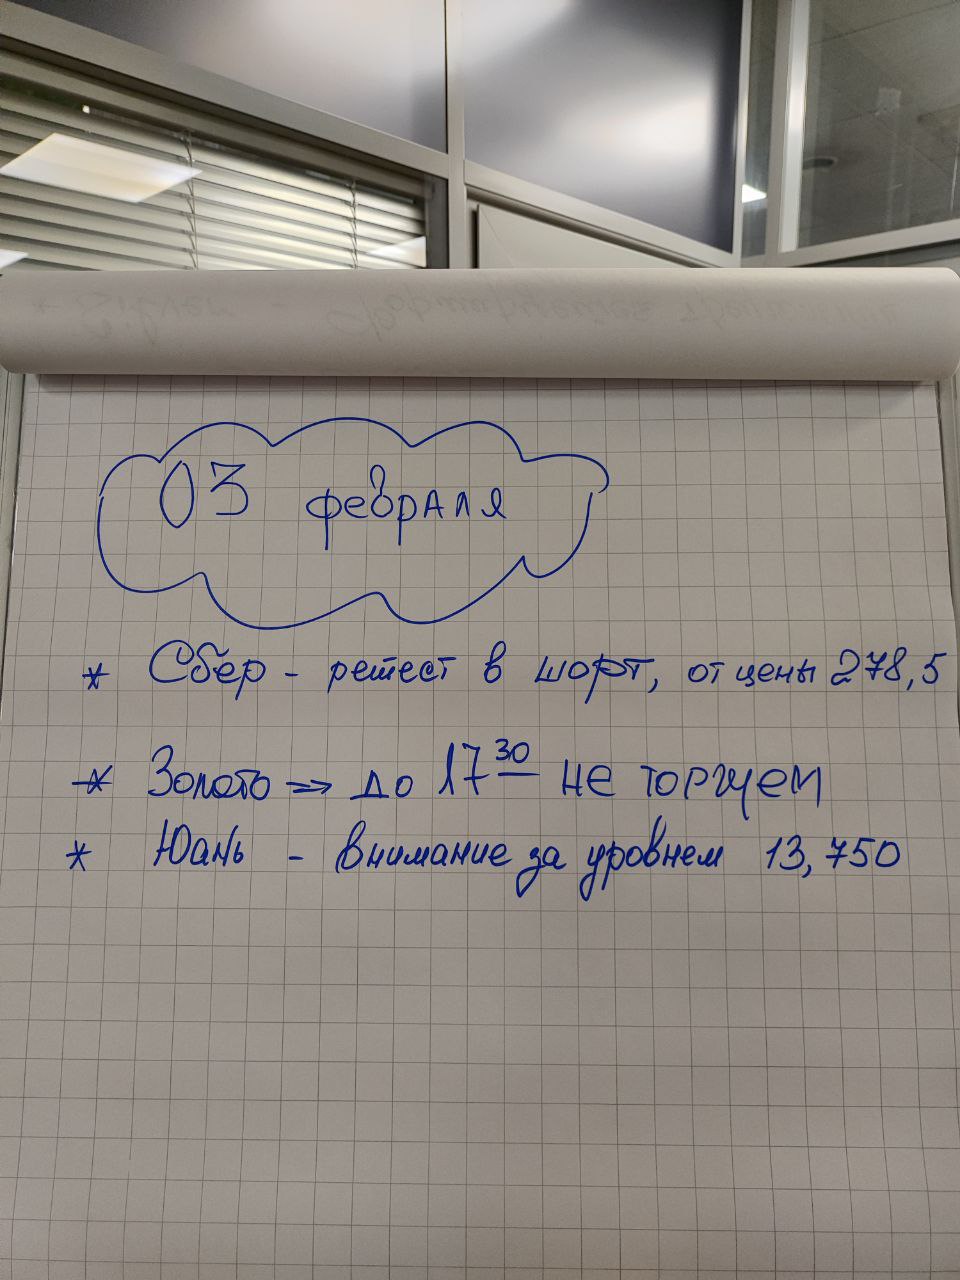 03 февраля
* Сбер - ретест в шорт, от цены 278,5
* Золото => до 17 30 не торгуем
* Юань - внимание за уровнем 13,750